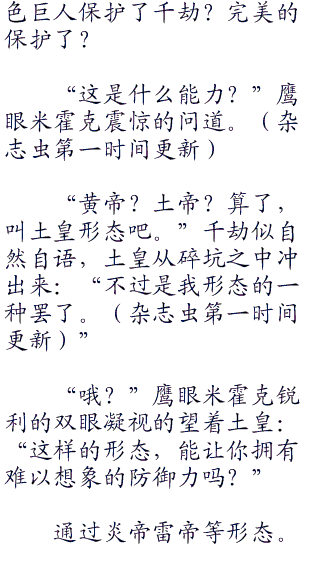 色巨人保护了千劫？完美的
保护了？
“这是什么能力？”鹰
眼米霍克震惊的问道。（杂
志虫第一时间更新）
“黄帝？土帝？算了，
叫土皇形态吧。”千劫似自
然自语，土皇从碎坑之中冲
出来：“不过是我形态的一
种罢了。（杂志虫第一时间
更新）”
“哦？”鹰眼米霍克锐
利的双眼凝视的望着土皇：
“这样的形态，能让你拥有
难以想象的防御力吗？”
通过炎帝雷帝等形态。